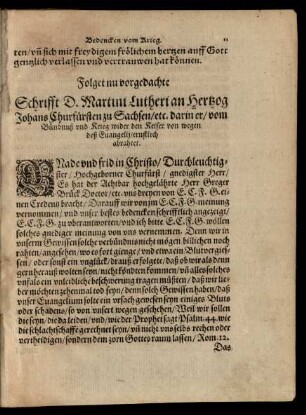 Bedencken vom Krieg.
ren/ vñ sich mit freydigem frölichem hertzen auff Gott
gentzlich verlassen vnd vertrauwen hat können.
Folget nu vorgedachte
Schrifft D. Martini Lutheri an Hertzog
Johans Churfürsten zu Sachsen/ etc. darin er/ vom
Bündnuß vnd Krieg wider den Keiser von wegen
deß Euangelij/ ernstlich
abrahtet.
GNade vnd frid in Christo/ Durchleuchtig-
ster/ Hochgeborner Churfürst/ gnedigster Herr/
Es hat der Achtbar hochgelährte Herr Greger
Brück Doctor/ etc. vns dreyen von E. C. F. G. ei-
nen Credentz bracht/ Darauff wir von jm E. C. F. G. meinung
vernommen/ vnd vnser bestes bedencken schrifftlich angezeigt/
E. C. F. G. zu vberantworten/ vnd ich bitte E. C. F. G. wöllen
solches gnediger meinung von vns vernemen. Denn wir in
vnserm Gewissen solche verbündnus nicht mögen billichen noch
rahten/ angesehen/ wo es fort gienge/ vnd etwa ein Blutvergies-
sen/ oder sonst ein vnglück/ drauß erfolgete/ daß ob wir als denn
gern herauß wolten seyn/ nicht köndten kommen/ vñ alles solches
vnfals ein vnleidliche beschwerung tragen müßten/ daß wir lie-
ber möchten zehenmal tod seyn/ denn solch Gewissen haben/ daß
vnser Euangelium solte ein vrsach gewesen seyn einiges Bluts
oder schadens/ so von vnsert wegen geschehen/ Weil wir sollen
die seyn/ die da leiden/ vnd/ wie der Prophet sagt Psalm. 44. wie
die schlachtschaffe gerechnet seyn/ vñ nicht vns selbs rechen oder
vertheidigen/ sondern dem zorn Gottes raum lassen/ Rom. 12.
Das